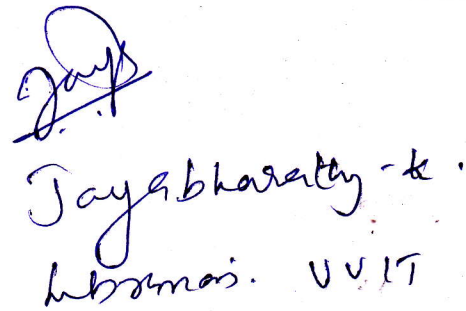 Jaya
Jayabharathy - k.
Librarian. VVIT